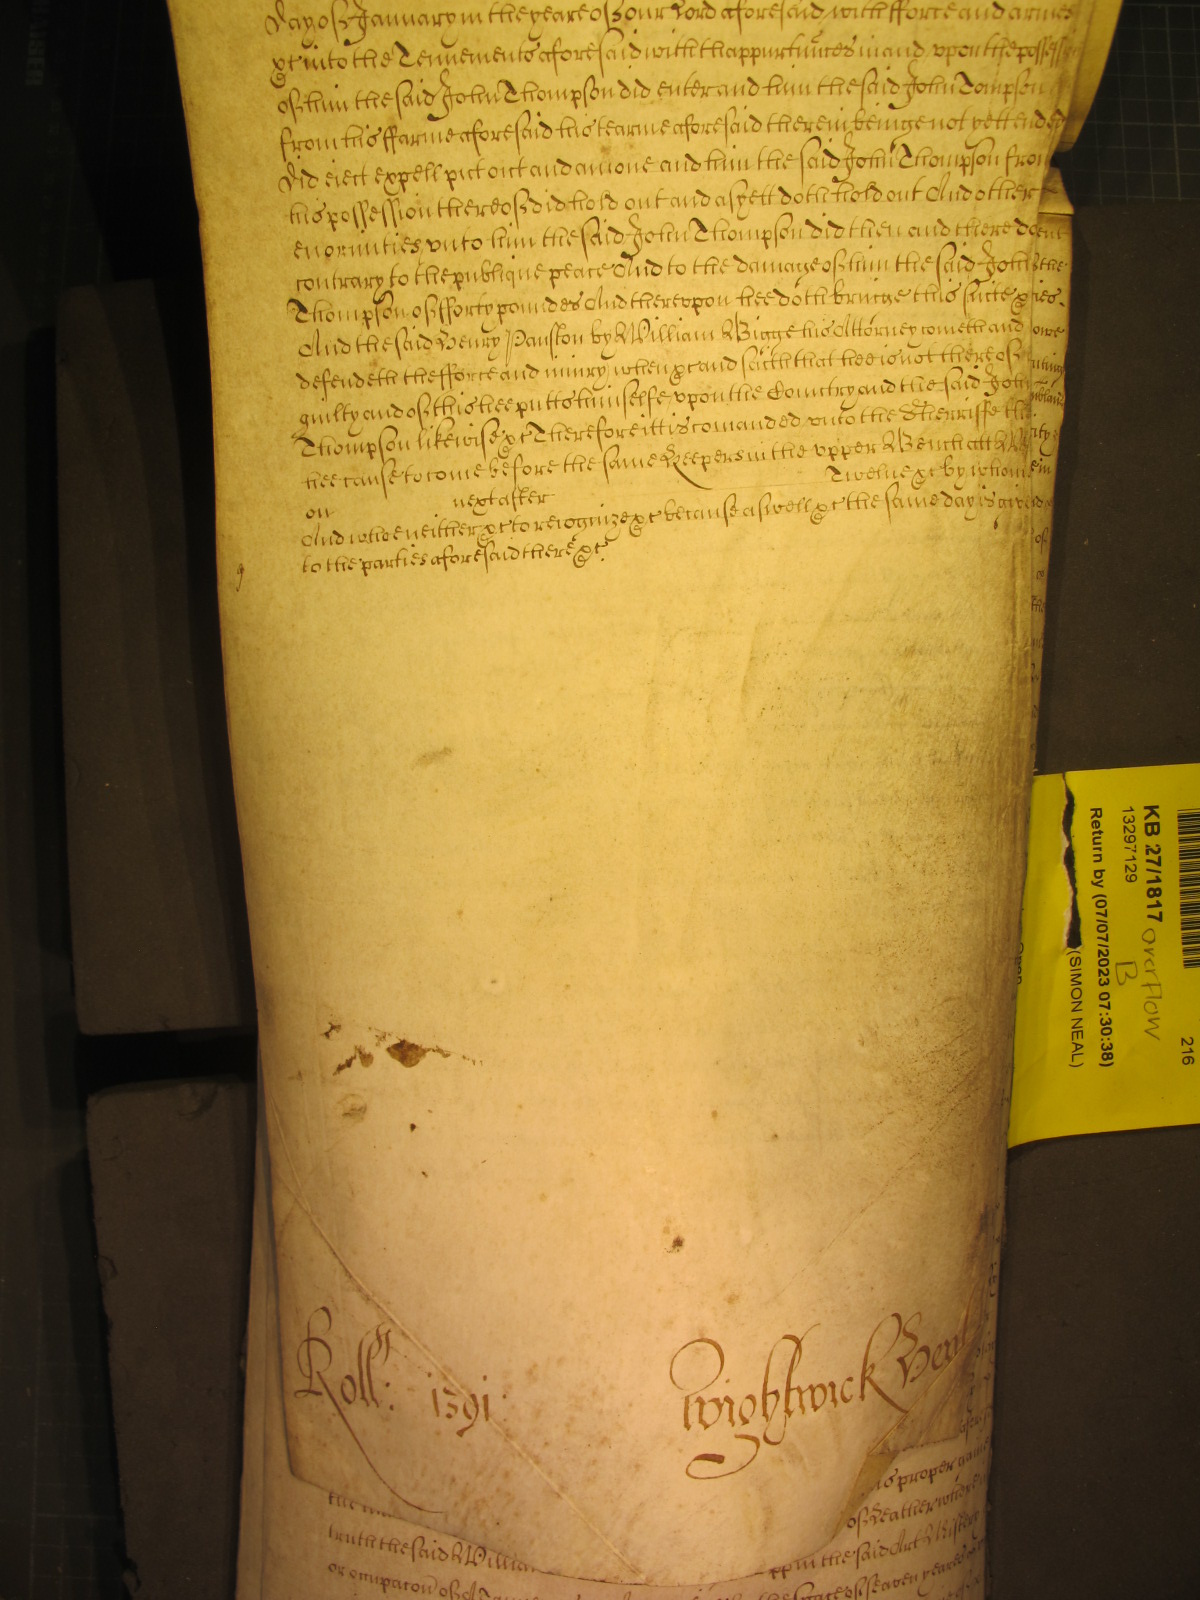 Day of January in the yeare of our Lord aforesaid with fforce and armes
&c into the Tennements aforesaid with thappurtinnces in and vpon the possess
of him the said John Thompson did enter and him the said John Tompson
from his ffarme aforesaid his tearme aforesaid therein beinge not yett ended
Did eiect expell put out and amove and him the said John Thompson from
his possession thereof did hold out and as yett doth hold out And other
enormities vnto him the said John Thompson did then and there doe
contrary to the publique peace And to the damage of him the said John
Thompson of fforty poundes And therevpon hee doth bringe this suite &c
And the said Henry Panston by William Bigge his Attorney cometh and
defendeth the fforce and iniury when &c and saith that hee is not thereof
guilty and of this hee putts himselfe vpon the Countrey and the said John
Thompson likewise &c Therefore itt is comanded vnto the Sherriffe th
hee cause to come before the same Keepers in the vpper Bench att
on next after Twelue &c by whom
And who neither &c to recognize &c because aswell &c the same day is
to the parties aforesaid there &c
Roll: 1391
Wightwick
is proper
truth the said Willia
of Leather
in the said Art
or occupacon of
the space of seaven yeares
KB 27/1817 overflow
B
13297129
Return by (07/07/2023 07:30:38)
(SIMON NEAL)
216